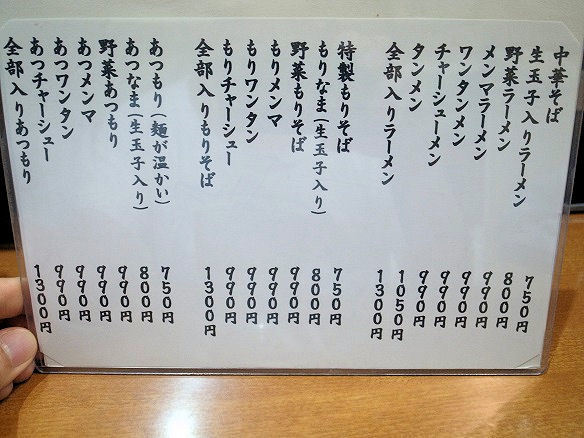 中華そば 750円
生玉子入りラーメン 800円
野菜ラーメン 990円
メンマラーメン 990円
ワンタンメン 990円
チャーシューメン 990円
タンメン 1050円
全部入りラーメン 1300円
特製もりそば 750円
もりなま(生玉子入り) 800円
野菜もりそば 990円
もりメンマ 990円
もりワンタン 990円
もりチャーシュー 990円
全部入りもりそば 1300円
あつもり(麺が温かい) 750円
あつなま(生玉子入り) 800円
野菜あつもり 990円
あつメンマ 990円
あつワンタン 990円
あつチャーシュー 990円
全部入りあつもり 1300円